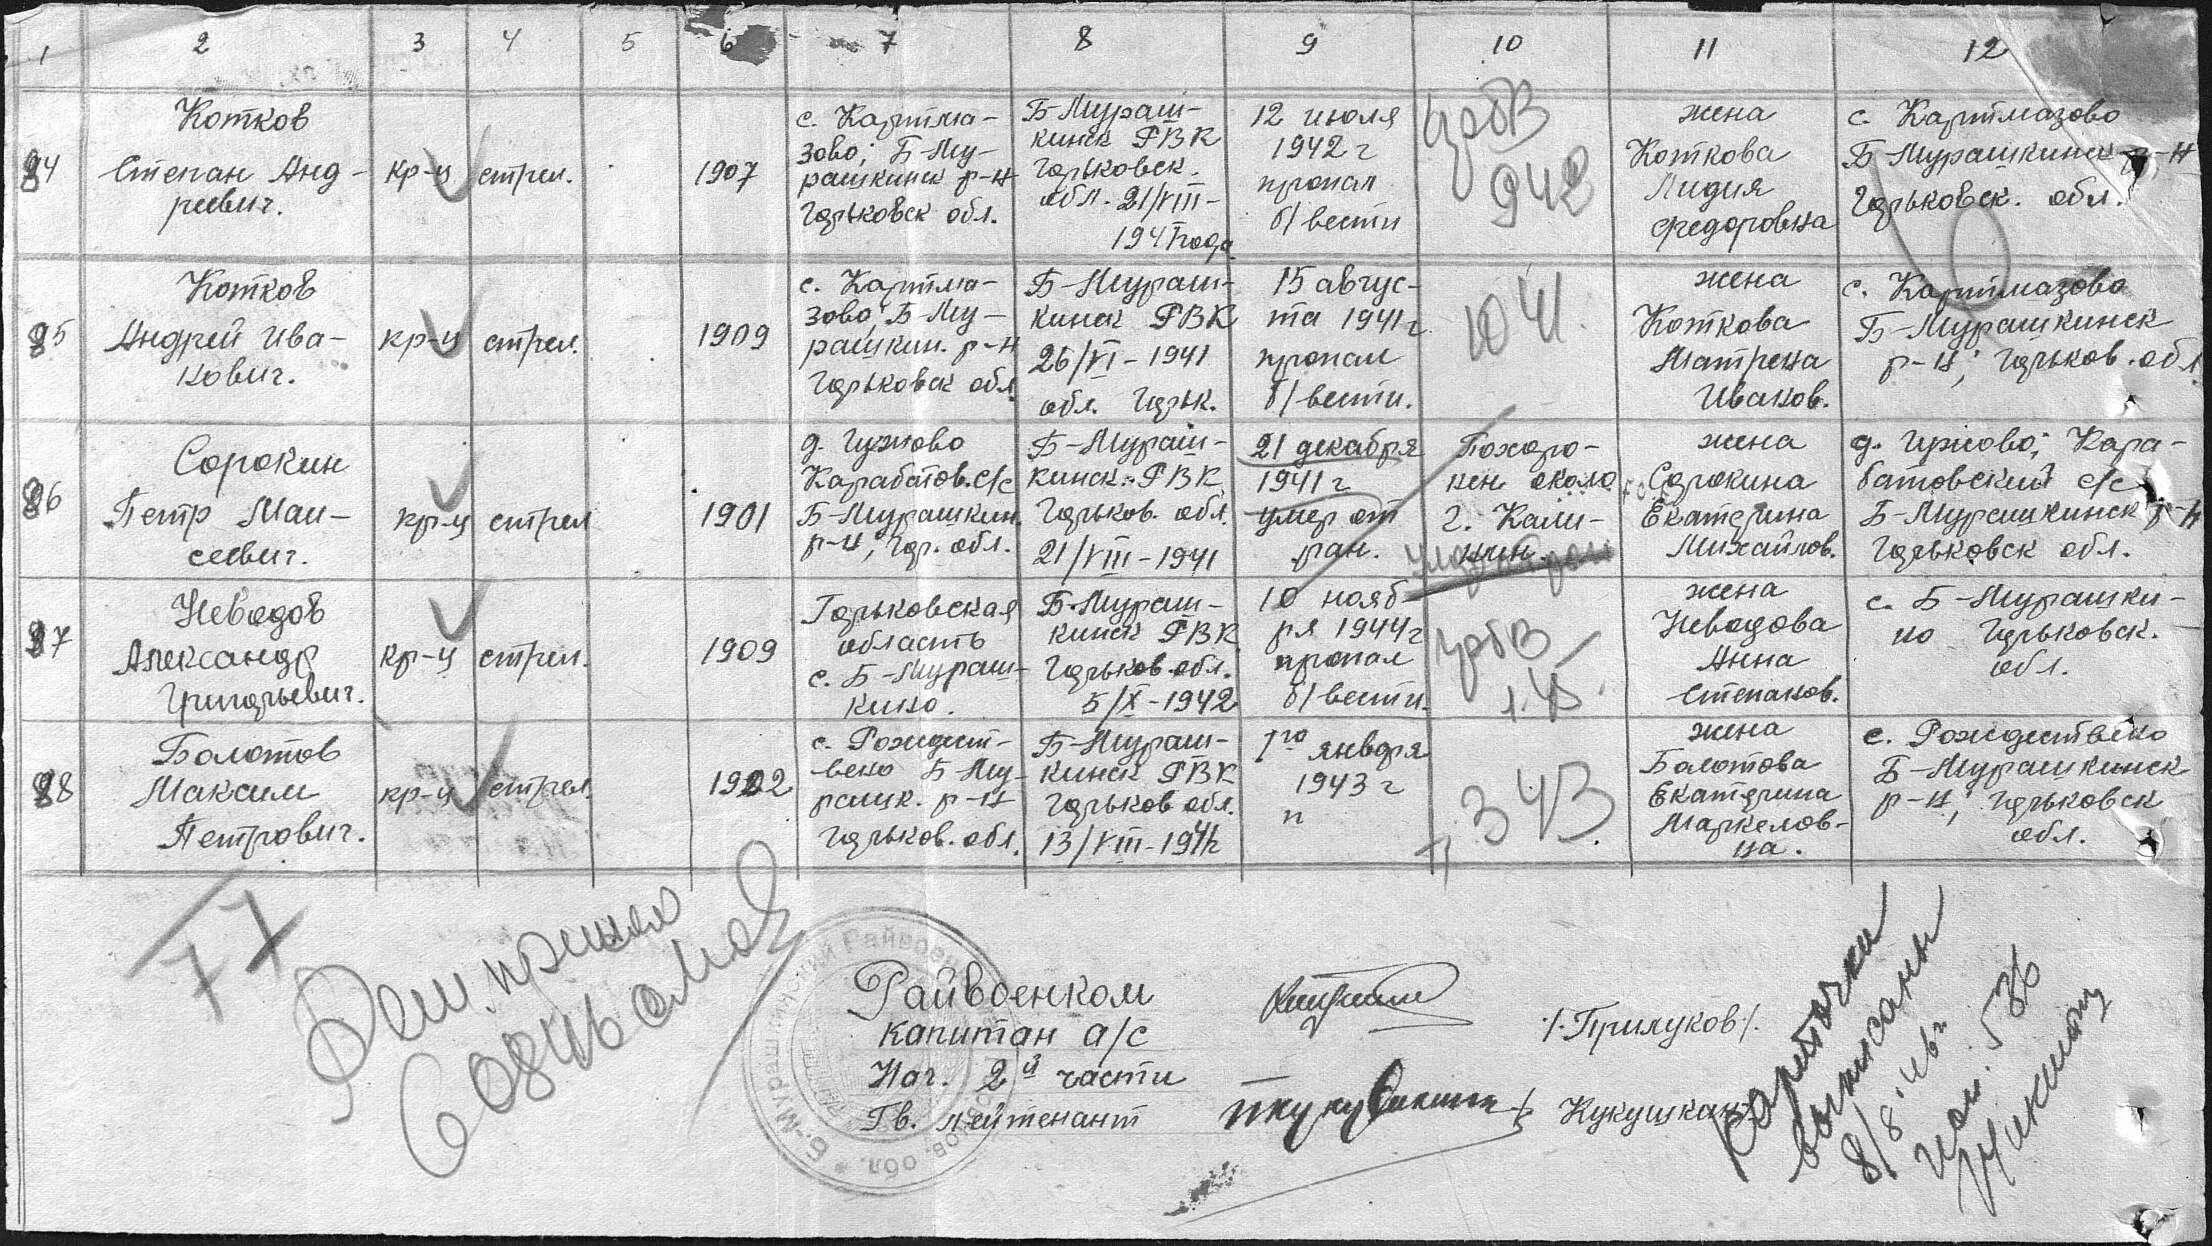 1 2 3 4 5 6 7 8 9 10 11 12
84
Котков
Степан Анд-
реевич.
кр-ц
стрел.
1907
с. Картма-
зово; Б-Му-
рашкинск р-н
Горьковск обл.
Б-Мураш-
кинск РВК
Горьковск.
обл. 21/VIII-
1941 года
12 июля
1942 г
пропал
б/вести
942
жена
Коткова
Лидия
Федоровна
с. Картмазово
Б-Мурашкинск р-н
Горьковск. обл.
85
Котков
Андрей Ива-
нович.
кр-ц
стрел.
1909
с. Картма-
зово Б-Му-
рашкин. р-н
Горьковск обл.
Б-Мураш-
кинск РВК
26/VI-1941
обл. Горьк.
15 авгус-
та 1941 г.
пропал
б/вести.
1041.
жена
Коткова
Матрена
Иванов.
с. Картмазово
Б-Мурашкинск
р-н; Горьков. обл.
86
Сорокин
Петр Мои-
сеевич.
кр-ц
стрел
1901
д. Ижово
Карабатов. с/с
Б-Мурашкин.
р-н; Гор. обл.
Б-Мураш-
кинск. РВК
Горьков. обл.
21/VIII-1941
21 декабря
1941 г
умер от
ран.
Похоро-
нен около
г. Кали-
нин.
жена
Сорокина
Екатерина
Михайлов.
д. Ижово; Кара-
батовский с/с
Б-Мурашкинск р-н
Горьковск обл.
87
Неводов
Александр
Григорьевич.
кр-ц
стрел.
1909
Горьковская
область
с. Б-Мураш-
кино.
Б-Мураш-
кинск РВК
Горьков. обл.
5/X-1942
10 нояб-
ря 1944 г
пропал
б/вести.
1.45.
жена
Неводова
Анна
Степанов.
с. Б-Мурашки-
но Горьковск.
обл.
88
Болотов
Максим
Петрович.
кр-ц
стрел.
1902
с. Рождест-
вено Б-Му-
рашк. р-н
Горьков. обл.
Б-Мураш-
кинск РВК
Горьков обл.
13/VIII-1941г
1го января
1943 г
п
п. 343.
жена
Болотова
Екатерина
Маркелов-
на.
с. Рождествено
Б-Мурашкинск
р-н; Горьковск
обл.
77
Райвоенком
капитан а/с
/.Прилуков/.
Нач. 2й части
Гв. лейтенант
Кукушкин
Карточки
выписаны
8/8.46 г